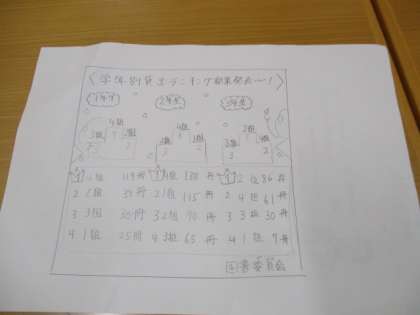 〈学年別貸出ランキング結果発表〜!〉
1年生 2年生 3年生
4組
1
3組 2組
3 2
1 4組 119冊 1 4組 138冊 1 2組 86冊
2 2組 39冊 2 1組 115冊 2 4組 61冊
3 3組 30冊 3 2組 70冊 3 3組 30冊
4 1組 25冊 4 3組 65冊 4 1組 7冊
図書委員会